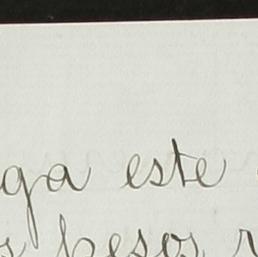 ga este
s pesos